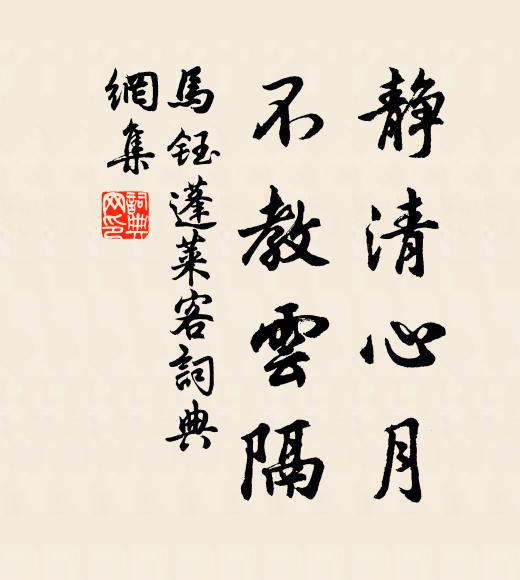 静清心月
不教雲隔
馬鈺蓬萊客詞典
網集
詞典
网印